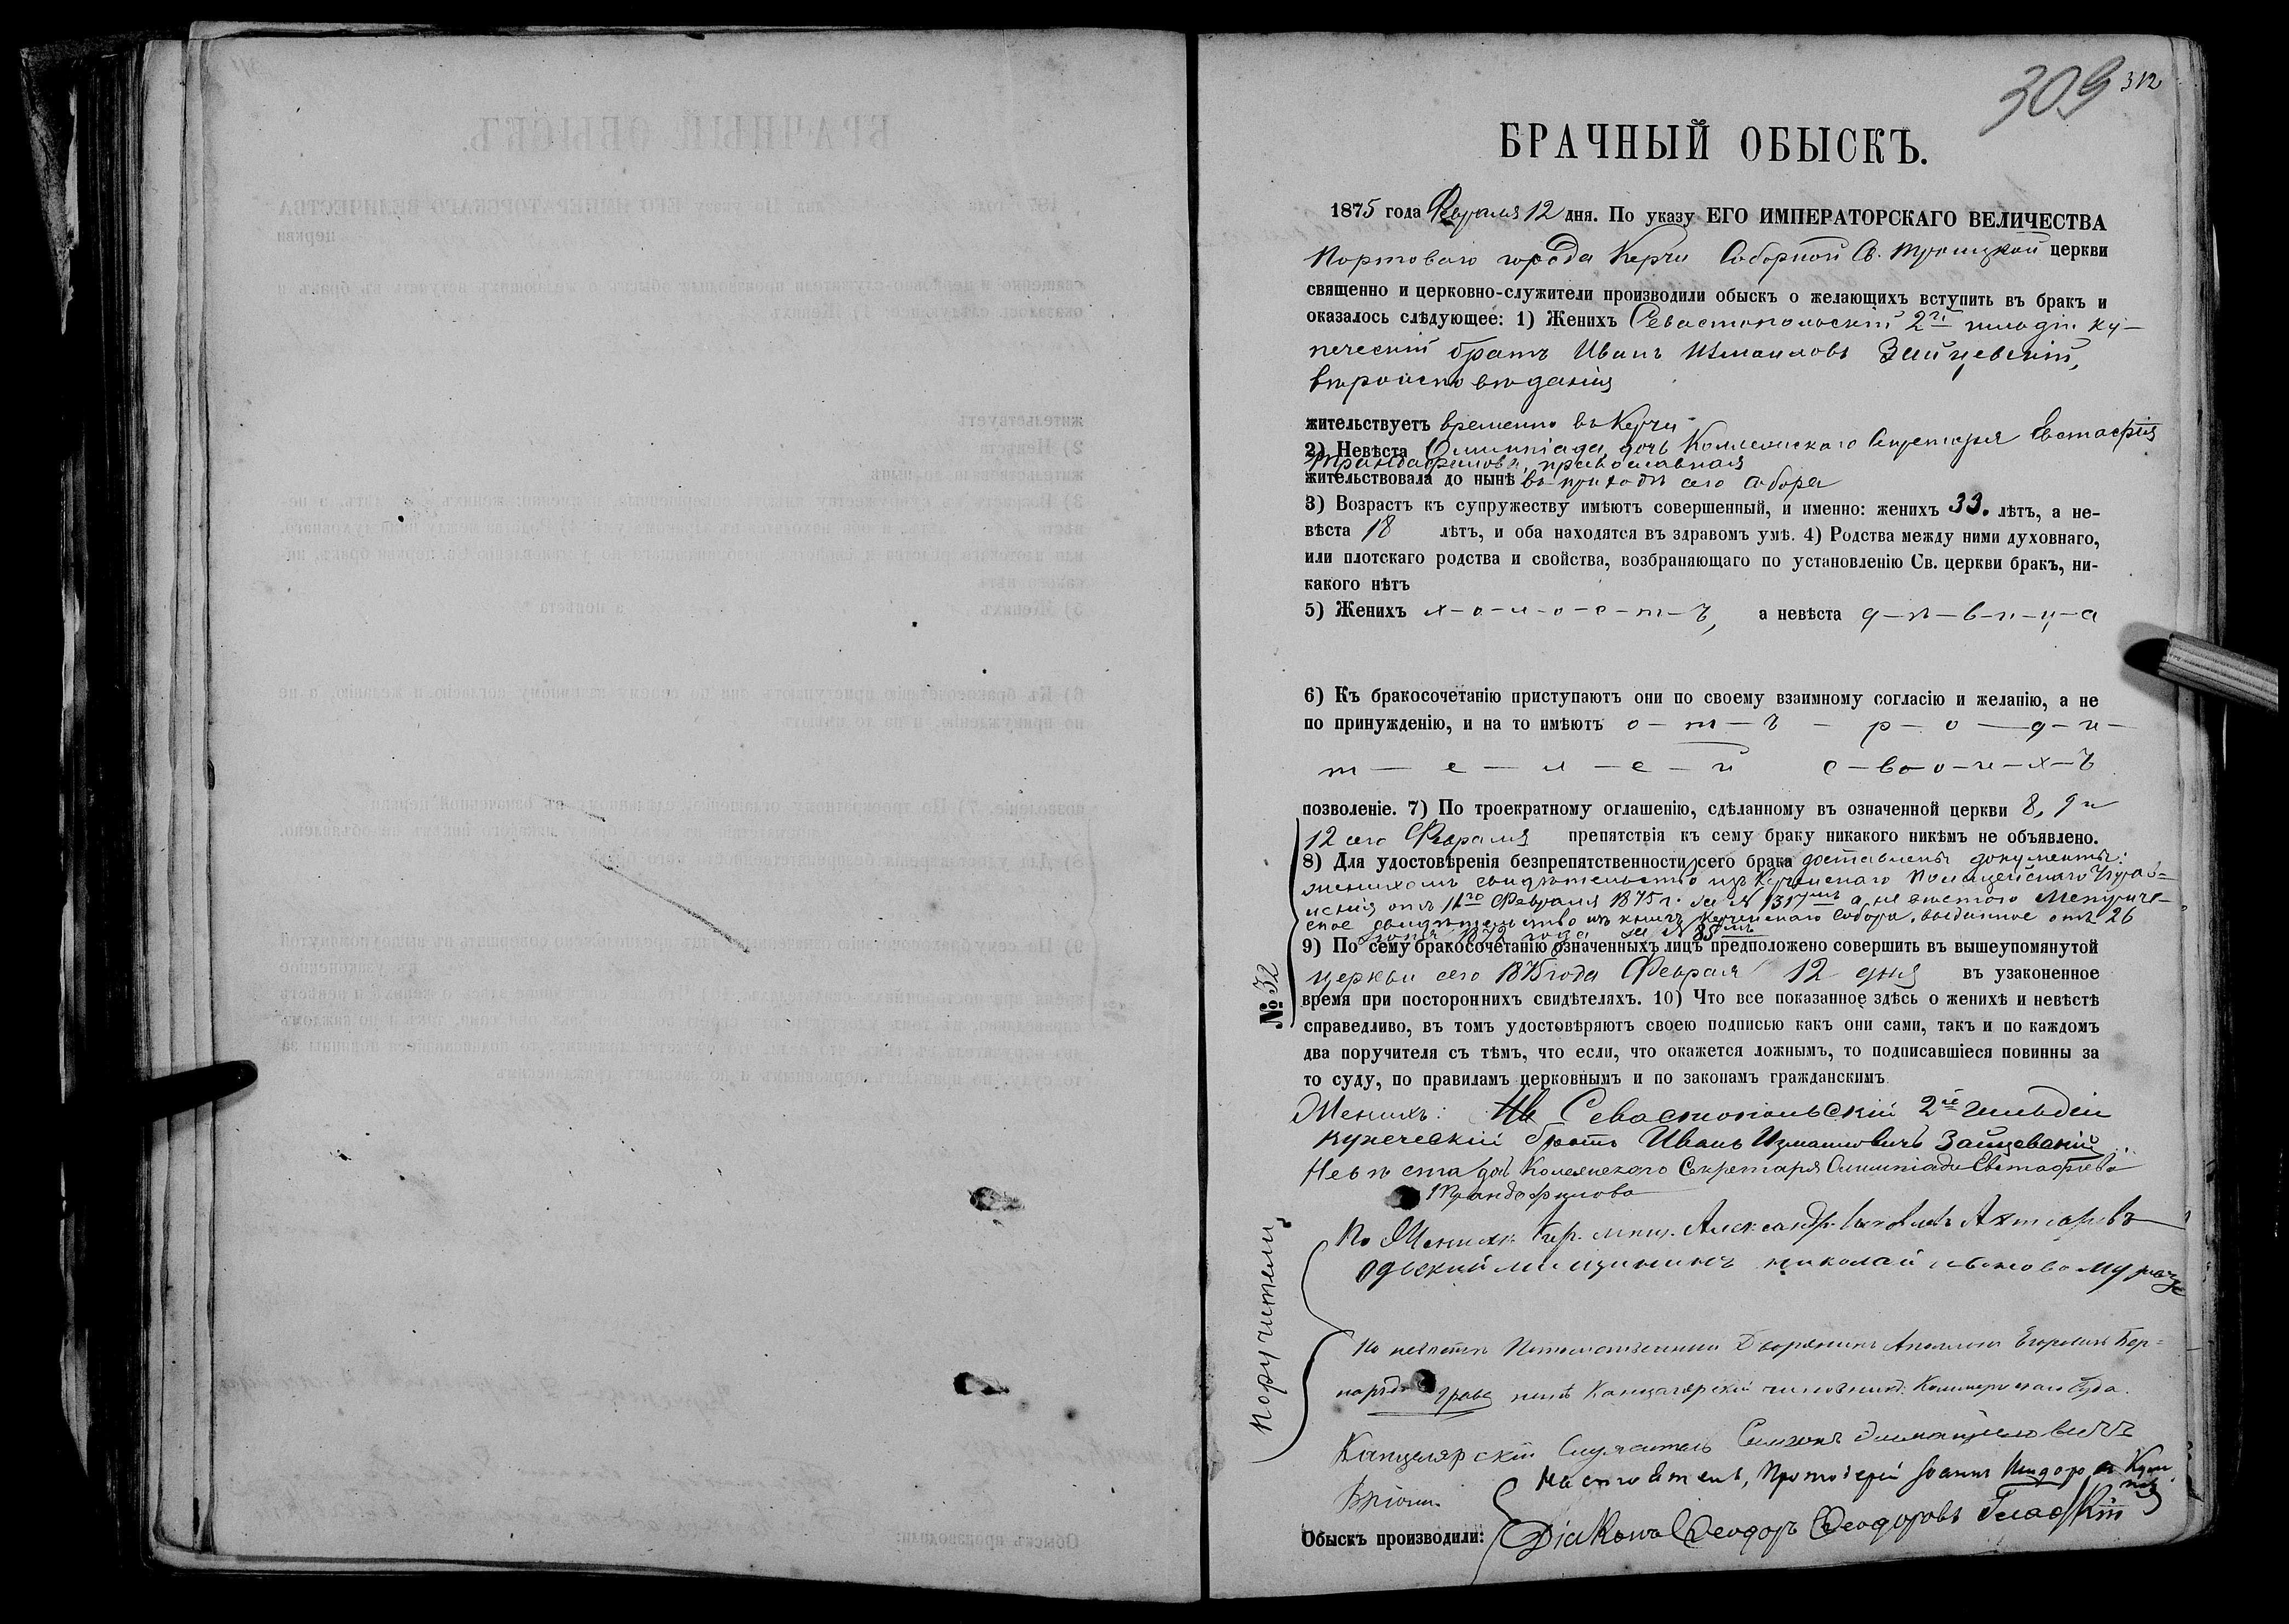 309 312
БРАЧНЫЙ ОБЫСКЪ.
1875 года Февраля 12 дня. По указу ЕГО ИМПЕРАТОРСКАГО ВЕЛИЧЕСТВА
Портоваго города Керчи Соборной Св. Троицкой церкви
священно и церковно-служители производили обыскъ о желающихъ вступить въ бракъ и
оказалось слѣдующее: 1) Женихъ Севастопольскій 2й гильдіи ку-
печескій братъ Иванъ Измаиловъ Зайцевскій,
вѣроисповѣданія
жительствуетъ временно въ Керчи
2) Невѣста Олимпіада, дочь Коллежскаго Секретаря Евстафія
Трандафилова, православная
жительствовала до нынѣ въ приходѣ сего Собора
3) Возрастъ къ супружеству имѣютъ совершенный, и именно: женихъ 33. лѣтъ, а не-
вѣста 18 лѣтъ, и оба находятся въ здравомъ умѣ. 4) Родства между ними духовнаго,
или плотскаго родства и свойства, возбраняющаго по установленію Св. церкви бракъ, ни-
какого нѣтъ
5) Женихъ х-о-л-о-с-т-ъ, а невѣста д-ѣ-в-и-ц-а
6) Къ бракосочетанію приступаютъ они по своему взаимному согласію и желанію, а не
по принужденію, и на то имѣютъ о-т-ъ - р-о-д-и-
т-е-л-е-й с-в-о-и-х-ъ
позволеніе. 7) По троекратному оглашенію, сдѣланному въ означенной церкви 8, 9 и
12 сего Февраля препятствія къ сему браку никакого никѣмъ не объявлено.
8) Для удостовѣренія безпрепятственности сего брака доставлены документы:
женихомъ свидѣтельство изъ Керченскаго Полицейскаго Управ-
ленія отъ 11го Февраля 1875 г. за № 1317мъ а невѣстою Метриче-
ское свидѣтельство изъ книгъ Керченскаго Собора, выданное отъ 26
187 года за № 85мъ
9) По сему бракосочетанію означенныхъ лицъ предположено совершить въ вышеупомянутой
церкви сего 1875 года Февраля 12 дня въ узаконенное
время при постороннихъ свидѣтеляхъ. 10) Что все показанное здѣсь о женихѣ и невѣстѣ
справедливо, въ томъ удостовѣряютъ своею подписью какъ они сами, такъ и по каждомъ
два поручителя съ тѣмъ, что если, что окажется ложнымъ, то подписавшіеся повинны за
то суду, по правиламъ церковнымъ и по законамъ гражданскимъ
№ 32
Женихъ: Ив Севастопольскій 2й гильдіи
купеческій братъ Иванъ Измаиловичъ Зайцевскій
Невѣста дочь Колежскаго Секретаря Олимпіада Евстафіева
Трандафилова
Поручители
По Женихѣ Кер. мѣщ. Александръ Яковлевъ
мещининъ николай
По невѣстѣ Потомственный Дворянинъ Аполлонъ Егоровичъ Бер-
Канцелярскій чиновникъ Коммерческаго Суда.
Канцелярскій Служитель
Настоятель, Протоіерей Іоаннъ
Обыскъ производили: Діаконъ Ѳеодоръ Ѳеодоровъ Гладкій